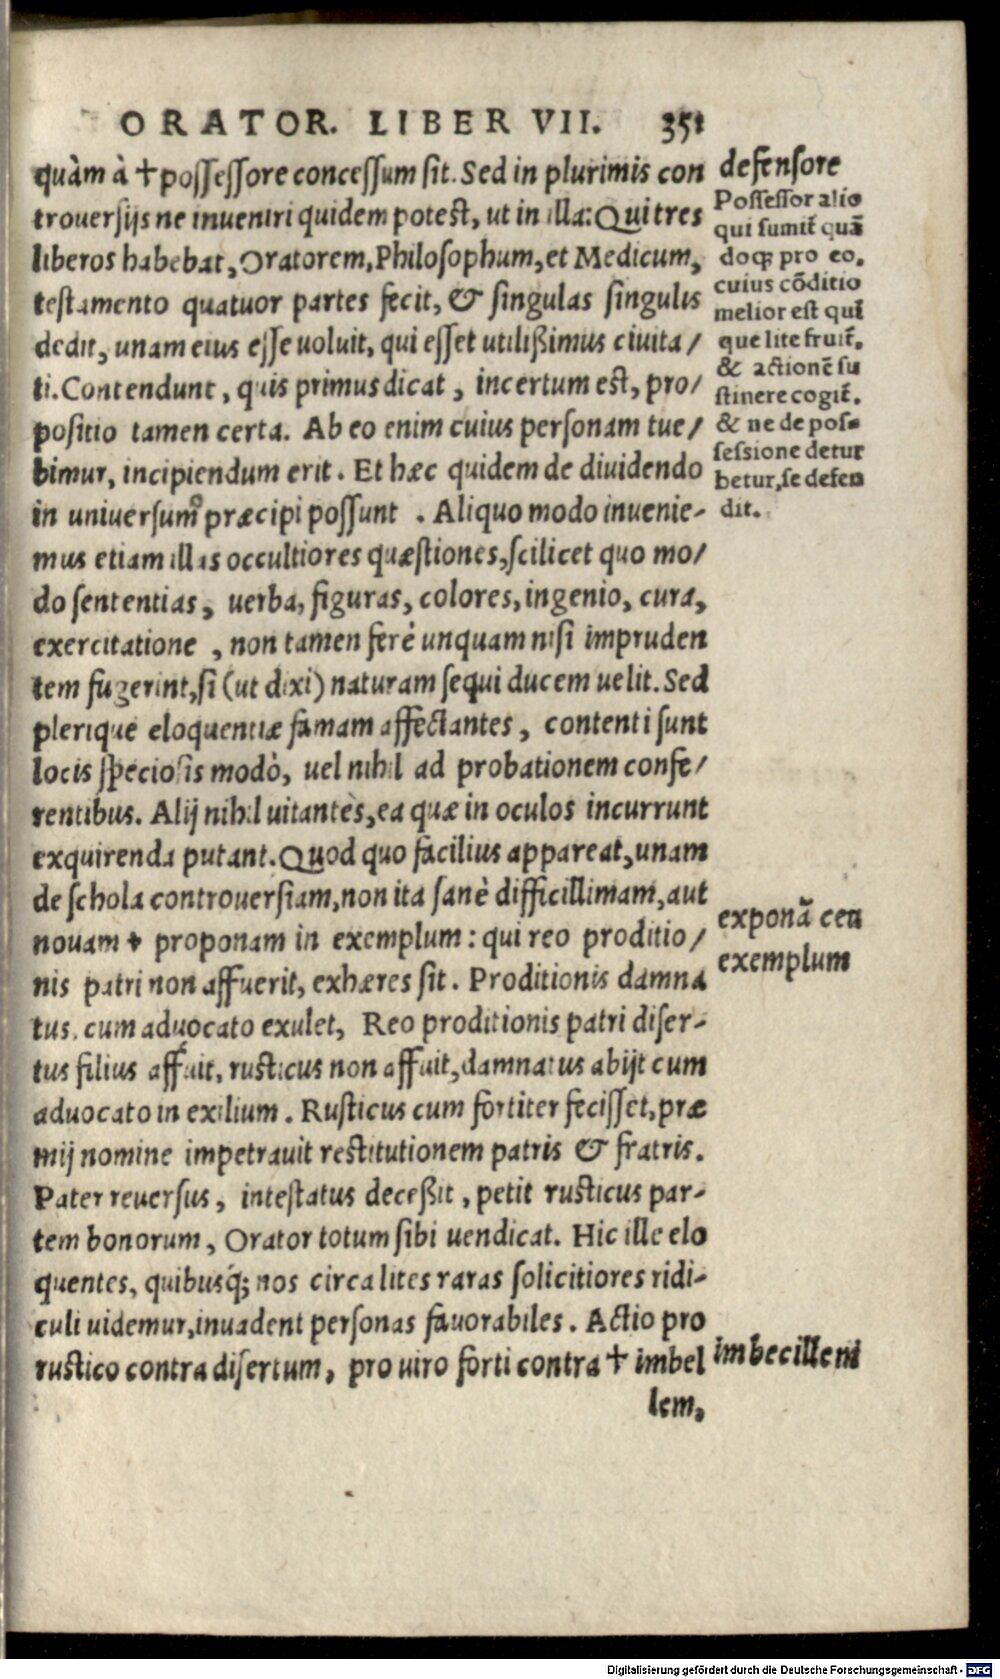 ORATOR. LIBER VII. 351
quàm à ✝ possessore concessum sit. Sed in plurimis con
troversijs ne inveniri quidem potest, ut in illa: Qui tres
liberos habebat, Oratorem, Philosophum, et Medicum,
testamento quatuor partes fecit, & singulas singulis
dedit, unam eius esse uoluit, qui esset utilißimus civita/
ti. Contendunt, quis primus dicat, incertum est, pro/
positio tamen certa. Ab eo enim cuius personam tue/
bimur, incipiendum erit. Et hæc quidem de dividendo
in universum præcipi possunt. Aliquo modo invenie-
mus etiam illas occultiores quæstiones, scilicet quo mo/
do sententias, uerba, figuras, colores, ingenio, cura,
exercitatione, non tamen ferè unquam nisi impruden
tem fugerint, si (ut dixi) naturam sequi ducem uelit. Sed
plerique eloquentiæ famam affectantes, contenti sunt
locis speciosis modò, uel nihil ad probationem confe/
rentibus. Alij nihil uitantes, ea quæ in oculos incurrunt
exquirenda putant. Quod quo facilius appareat, unam
de schola controversiam, non ita sanè difficillimam, aut
novam ✝ proponam in exemplum: qui reo proditio/
nis patri non affuerit, exhæres sit. Proditionis damna
tus, cum advocato exulet, Reo proditionis patri diser-
tus filius affuit, rusticus non affuit, damnatus abijt cum
advocato in exilium. Rusticus cum fortiter fecisset, præ
mij nomine impetravit restitutionem patris & fratris.
Pater reversus, intestatus deceßit, petit rusticus par-
tem bonorum, Orator totum sibi uendicat. Hic ille elo
quentes, quibusq́; nos circa lites raras solicitiores ridi-
culi uidemur, invadent personas favorabiles. Actio pro
rustico contra disertum, pro uiro forti contra ✝ imbel
lem,
defensore
Possessor alio
qui sumit̃ quã
doq; pro eo,
cuius cõditio
melior est quĩ
que lite fruit̃,
& actionẽ su
stinere cogit̃,
& ne de pos-
sessione detur
betur, se defen
dit.
exponã ceu
exemplum
imbecillem
Digitalisierung gefördert durch die Deutsche Forschungsgemeinschaft - DFG